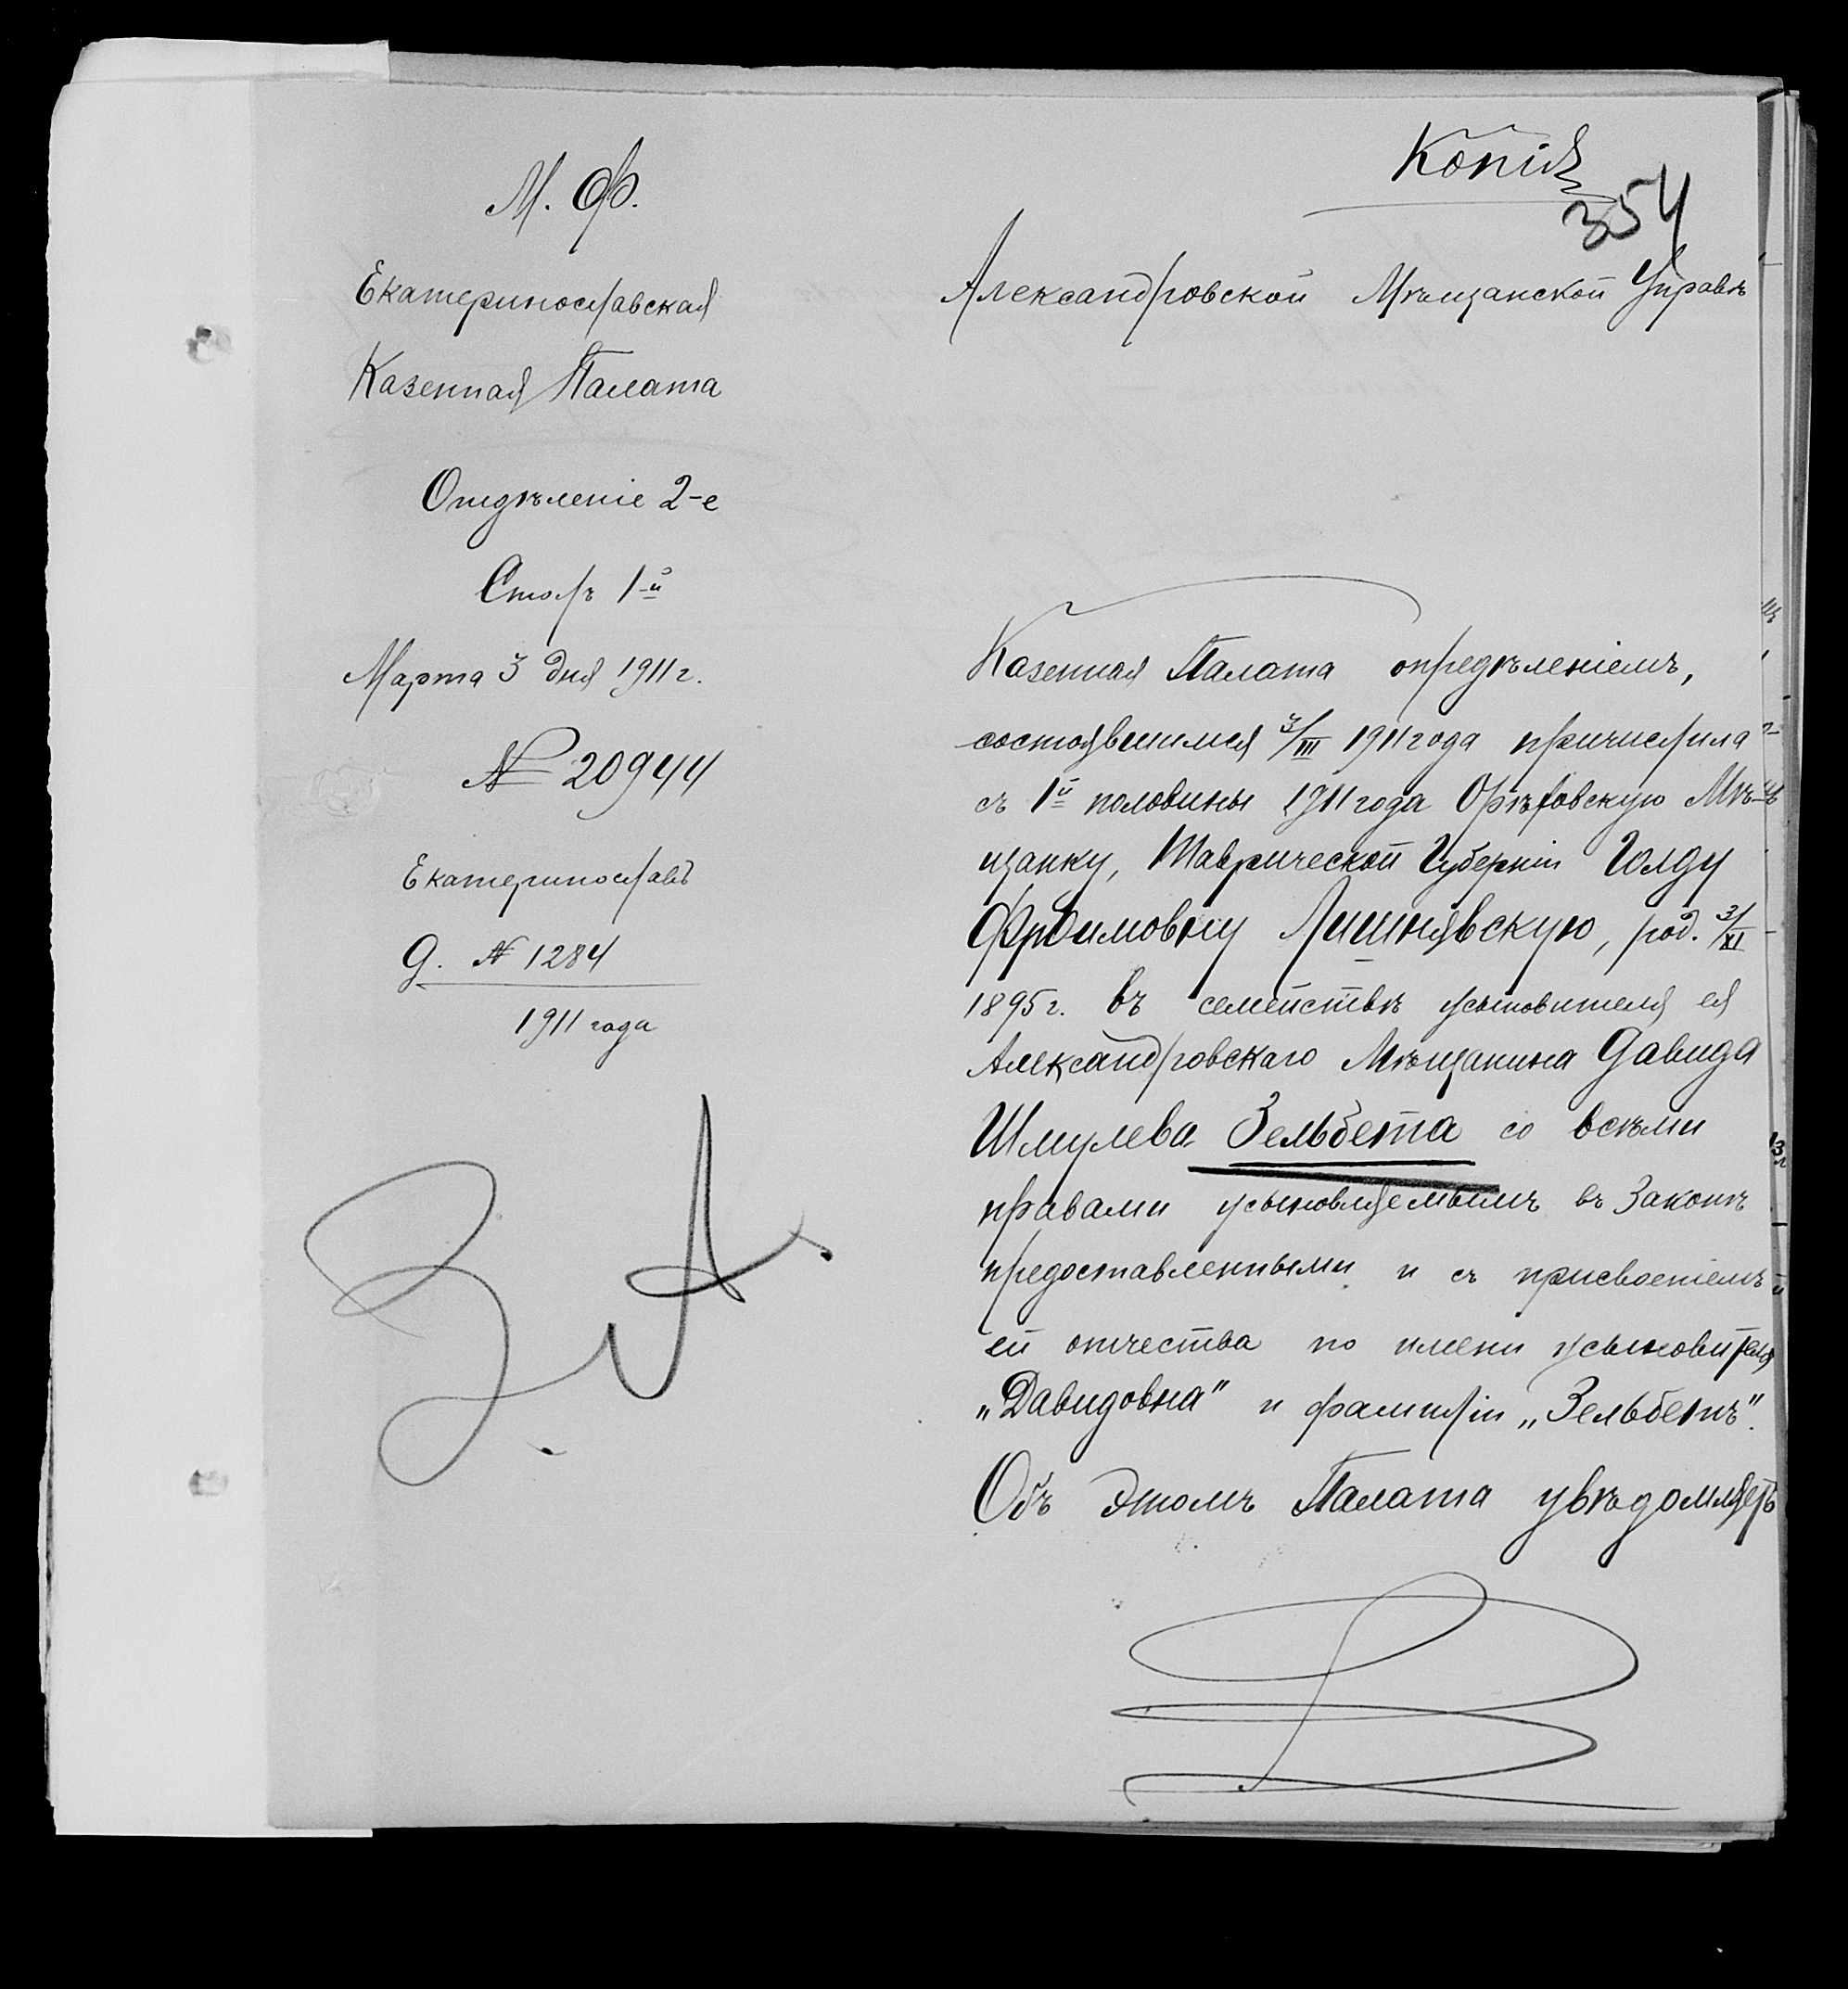 Копія
354
М. Ф.
Екатеринославская
Казенная Палата
Отдѣленіе 2-е
Столъ 1-й
Марта 3 дня 1911 г.
№ 20944
Екатеринославъ
Д. № 1284
1911 года
Александровской Мѣщанской Управѣ
Казенная Палата опредѣленіемъ,
состоявшимся 3/III 1911 года причислила
съ 1й половины 1911 года Орѣховскую Мѣ-
щанку, Таврической Губерніи Голду
Фроимовну Лишнявскую, род. 3/XI
1895 г. въ семействѣ усыновителя ея
Александровскаго Мѣщанина Давида
Шмулева Зельбета со всѣми
правами усыновляемымъ въ Законѣ
предоставленными и съ присвоеніемъ
ей отчества по имени усыновителя
„Давидовна" и фамиліи „Зельбетъ".
Объ этомъ Палата увѣдомляетъ